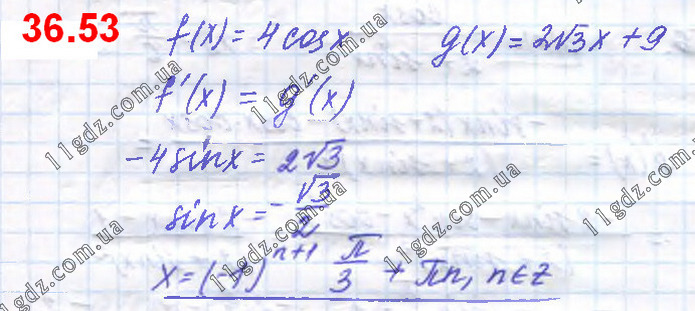 36.53
f(x) = 4cosx g(x) = 2√3x + 9
f'(x) = g'(x)
-4sinx = 2√3
sinx = -√3/2
x = (-1)^(n+1) π/3 + πn, n∈z
11gdz.com.ua
11gdz.com.ua
11gdz.com.ua
11gdz.com.ua
11gdz.com.ua
11gdz.com.ua
11gdz.com.ua